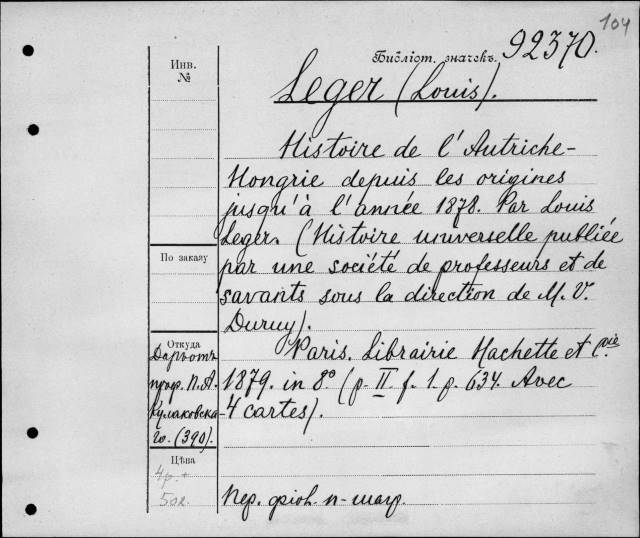 104
Библіот. значекъ. 92370.
Инв.
№
Leger (Louis).
Histoire de l'Autriche-
Hongrie depuis les origines
jusqu'à l'année 1878. Par Louis
Leger. (Histoire universelle publiée
По заказу
par une société de professeurs et de
savants sous la direction de M. V.
Duruy).
Откуда
Даръ отъ
проф. П. А.
Кулаковска-
го. (390).
Paris. Librairie Hachette et Cie.
1879. in 8º (p. II f. 1. p. 634. Avec
4 cartes).
Цѣна
4р.
50к.
Пер. фіол. п-шагр.